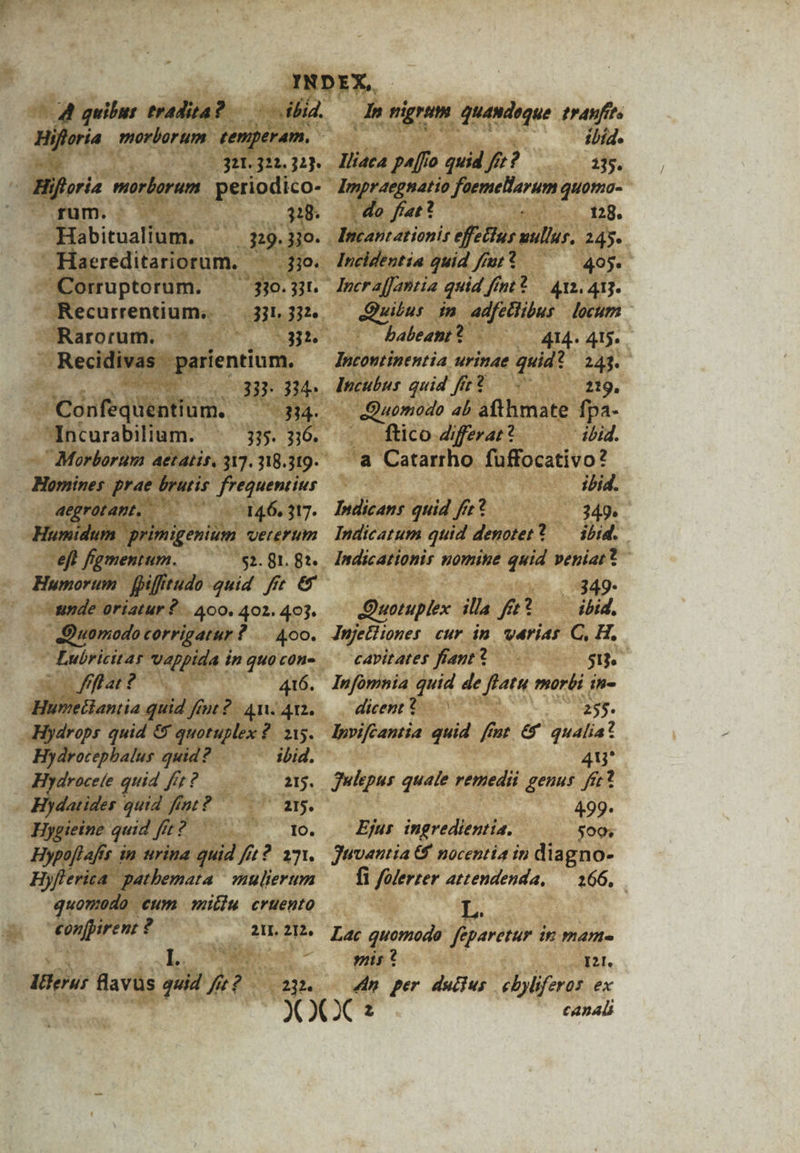 INDEX.
A quibus tradita? ibid.
Hiſtoria morborum temperam.
321. 322. 323.
Hiſtoria morborum periodico-
rum. 328.
Habitualium. 329. 330.
Haereditariorum. 330.
Corruptorum. 330. 331.
Recurrentium. 331. 332.
Rarorum. 332.
Recidivas parientium.
333. 334.
Conſequentium. 334.
Incurabilium. 335. 336.
Morborum aetatis. 317. 318. 319.
Homines prae brutis frequentius
aegrotant. 146. 317.
Humidum primigenium veterum
eſt figmentum. 52. 81. 82.
Humorum ſpiſſitudo quid ſit &
unde oriatur? 400. 402. 403.
Quomodo corrigatur? 400.
Lubricitas vappida in quo con-
ſiſtat? 416.
Humectantia quid ſint? 411. 412.
Hydrops quid & quotuplex? 215.
Hydrocephalus quid? ibid.
Hydrocele quid ſit? 215.
Hydatides quid ſint? 215.
Hygieine quid ſit? 10.
Hypoſtaſis in urina quid ſit? 271.
Hyſterica pathemata mulierum
quomodo cum mictu cruento
conſpirent? 211. 212.
I.
Icterus flavus quid ſit? 232.
In nigrum quandoque tranſit.
ibid.
Iliaca paſſio quid ſit? 235.
Impraegnatio foemellarum quomo-
do fiat? 128.
Incantationis effectus nullus. 245.
Incidentia quid ſint? 405.
Incraſſantia quid ſint? 412. 413.
Quibus in adfectibus locum
habeant? 414. 415.
Incontinentia urinae quid? 243.
Incubus quid ſit? 229.
Quomodo ab aſthmate ſpa-
ſtico differat? ibid.
a Catarrho ſuffocativo?
ibid.
Indicans quid ſit? 349.
Indicatum quid denotet? ibid.
Indicationis nomine quid veniat?
349.
Quotuplex illa ſit? ibid.
Injectiones cur in varias C. H.
cavitates fiant? 513.
Inſomnia quid de ſtatu morbi in-
dicent? 255.
Inviſcantia quid ſint & qualia?
413.
Julepus quale remedii genus ſit?
499.
Ejus ingredientia. 500.
Juvantia & nocentia in diagno-
ſi ſolerter attendenda. 266.
L.
Lac quomodo ſeparetur in mam-
mis? 121.
An per ductus chyliferos ex
)( )( )( 2 canali